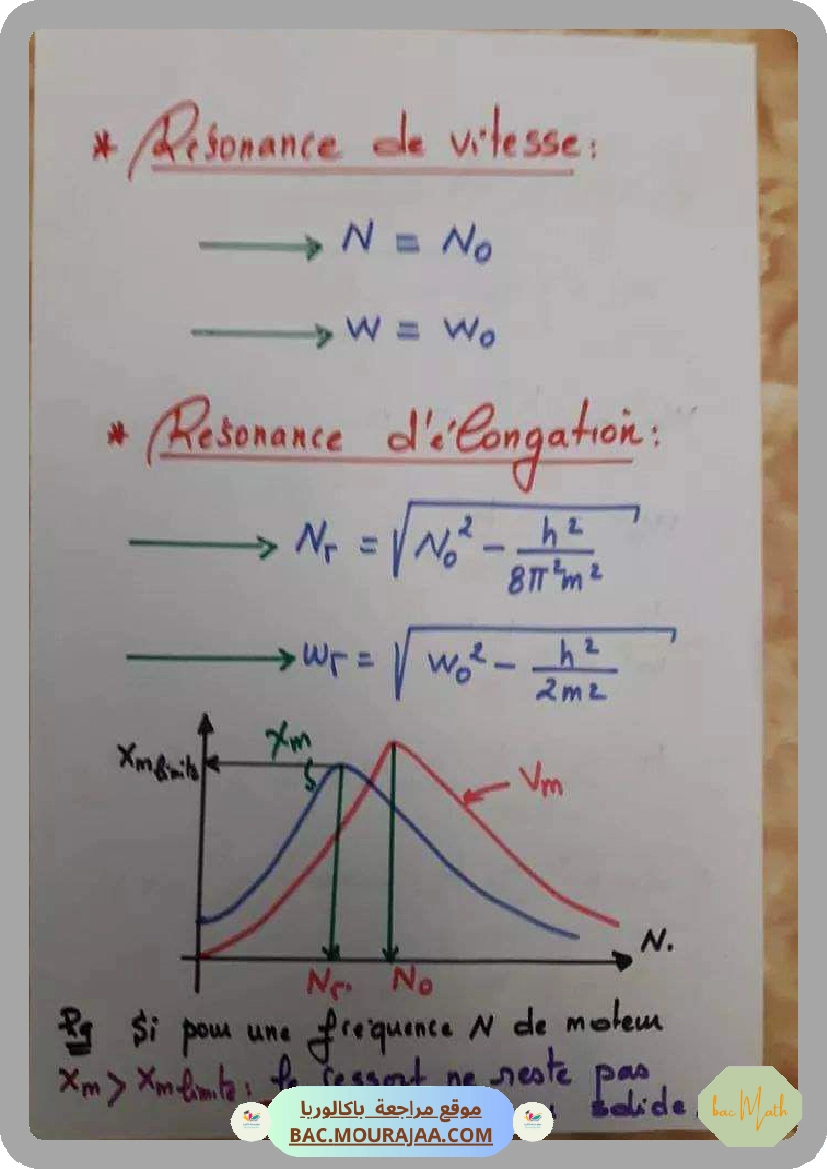 * Résonance de vitesse :
N = N₀
W = W₀
* Résonance d'élongation :
Nr = √(N₀² − h²/8π²m²)
Wr = √(W₀² − h²/2m²)
Xm
Xm limite
Vm
N.
Nr. N₀
Rq Si pour une fréquence N de moteur
Xm > Xm limite : le ressort ne reste pas
solide.
موقع مراجعة باكالوريا
BAC.MOURAJAA.COM
bac Math